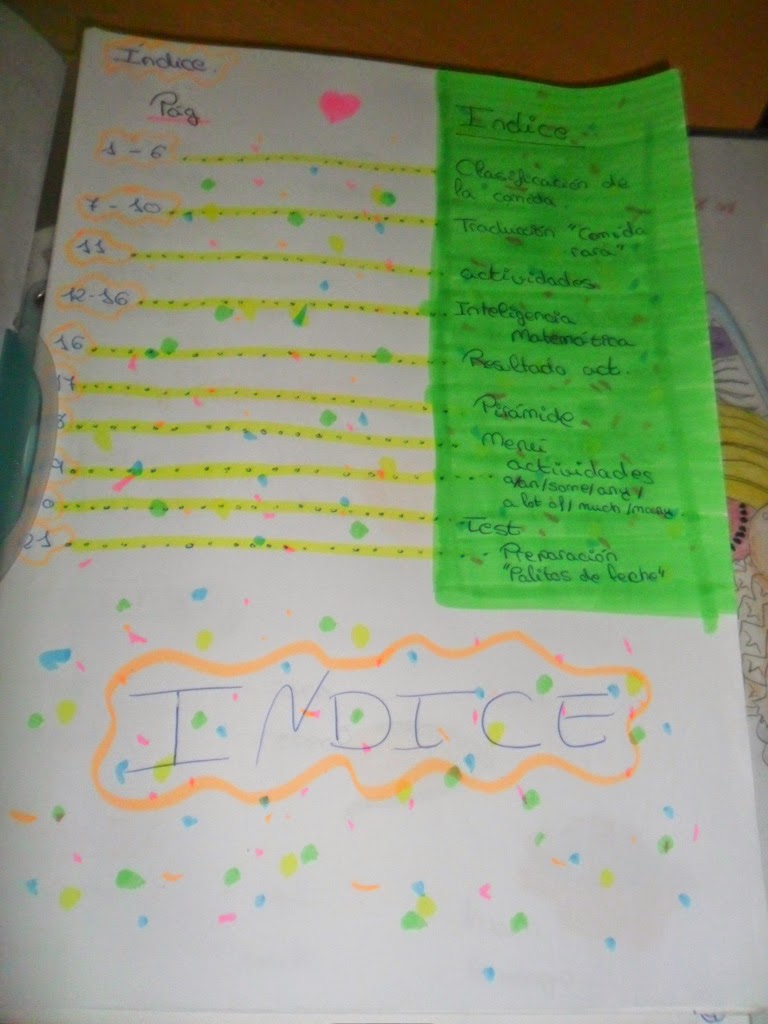 Índice.
Pág
Indice.
1 - 6 Clasificación de
la comida.
7 - 10 Traducción "Comida
rara"
11 actividades
12-16 Inteligencia
Matemática
16 Resultado act.
17 Pirámide
8 Menú
9 actividades
a/an/some/any/
a lot of/much/many
0 Test
21 Preparación
"Palitos de leche"
INDICE